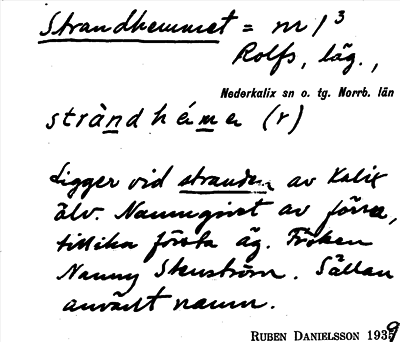 Strandhemmet = nr 1³
Rolfs, läg.,
Nederkalix sn o. tg. Norrb. län
stràndhém̲e (r)
Ligger vid stranden av Kalix
älv. Namngivet av förra,
tillika första äg. Fröken
Nanny Stenström. Sällan
använt namn.
RUBEN DANIELSSON 1939